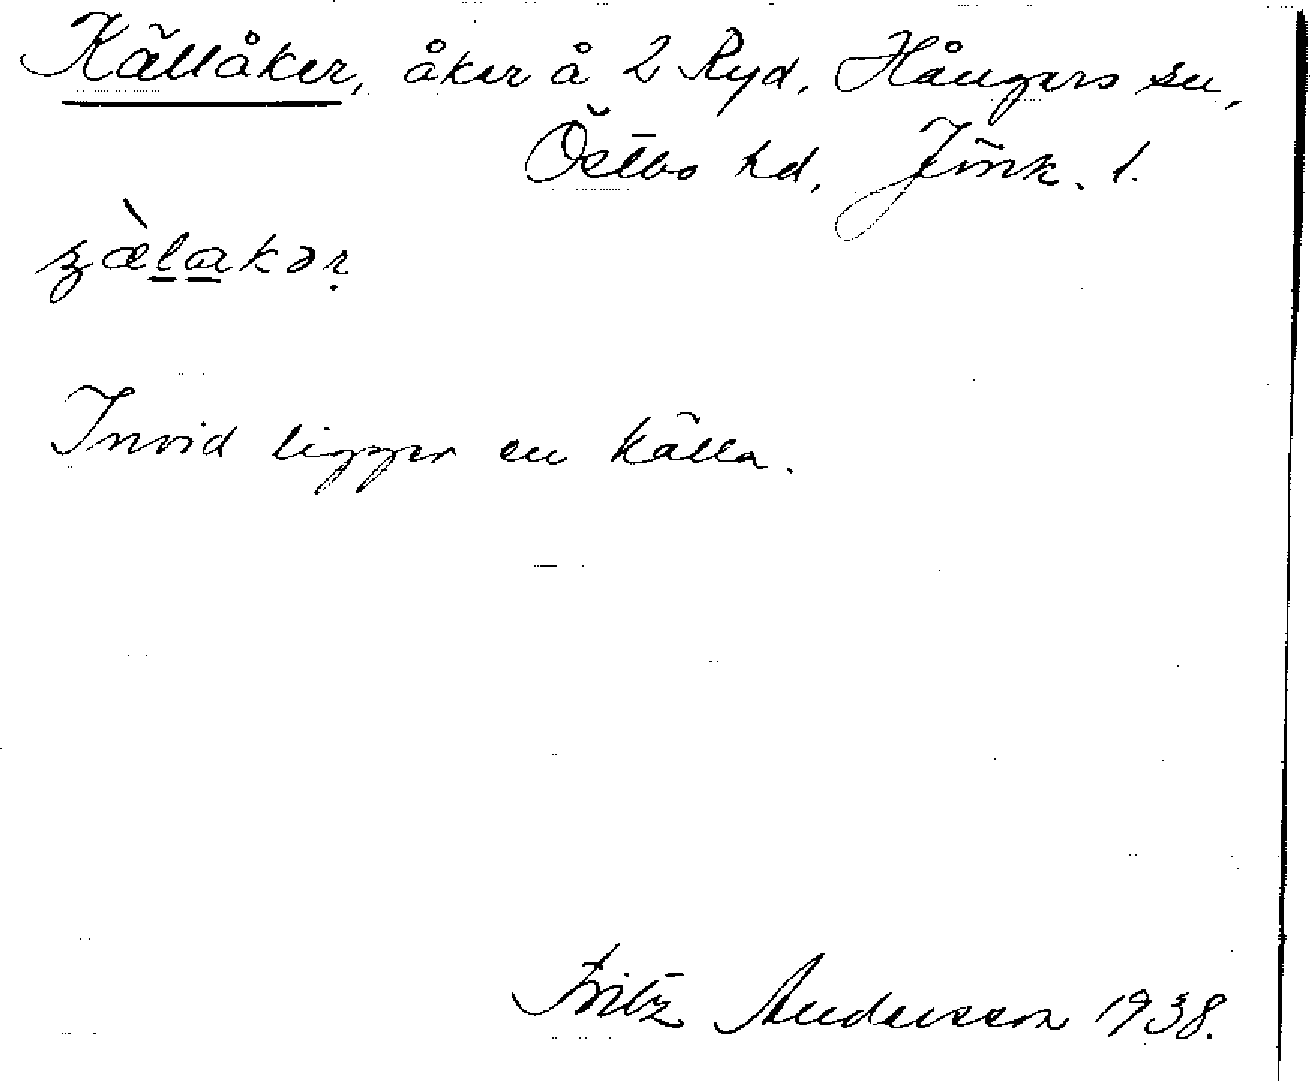 Källåker, åker å 2 Ryd, Hångers sn,
Östbo hd, Jönk. l.
Invid ligger en källa.
Fritz Andersson 1938.